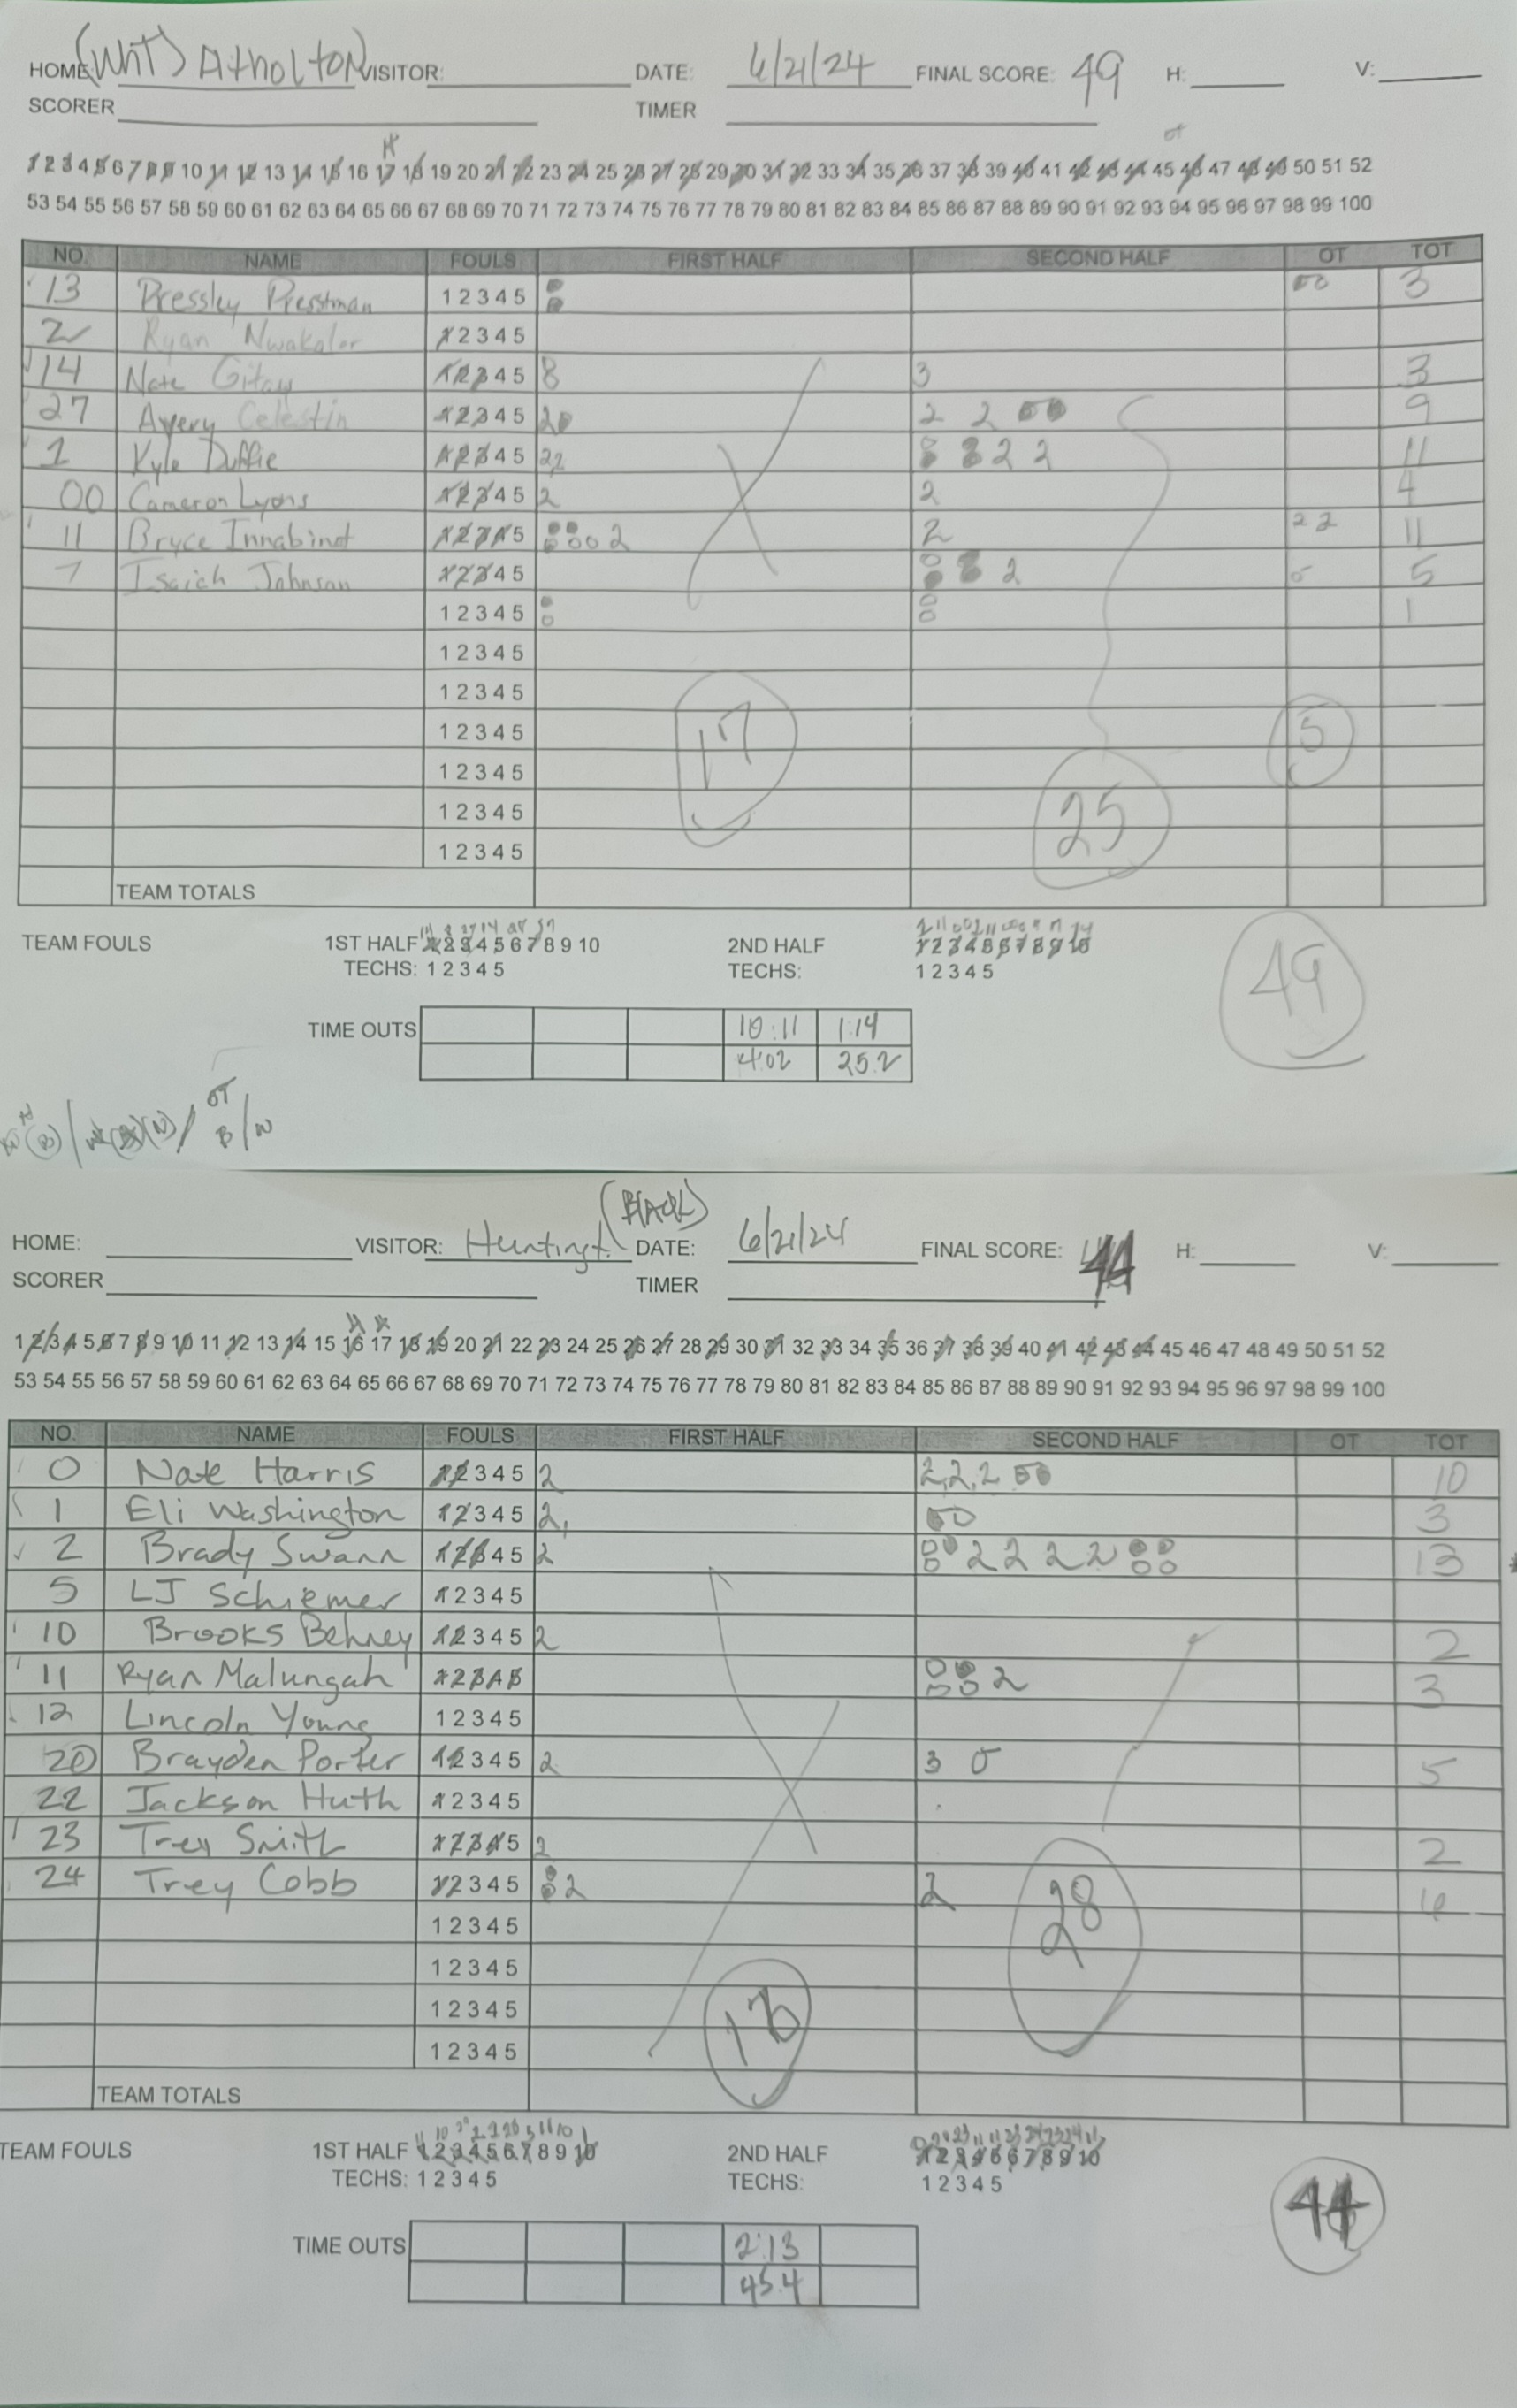 HOME: (WhT) Atholton VISITOR: DATE: 6/21/24 FINAL SCORE: 49 H: V:
SCORER TIMER
H OT
1 2 3 4 5 6 7 8 9 10 11 12 13 14 15 16 17 18 19 20 21 22 23 24 25 26 27 28 29 30 31 32 33 34 35 36 37 38 39 40 41 42 43 44 45 46 47 48 49 50 51 52
53 54 55 56 57 58 59 60 61 62 63 64 65 66 67 68 69 70 71 72 73 74 75 76 77 78 79 80 81 82 83 84 85 86 87 88 89 90 91 92 93 94 95 96 97 98 99 100
NO. NAME FOULS FIRST HALF SECOND HALF OT TOT
13 Pressley Presstman 1 2 3 4 5 3
2 Ryan Nwakalor 1 2 3 4 5
14 Nate Gitau 1 2 3 4 5 3 3
27 Avery Celestin 1 2 3 4 5 2 2 2 9
1 Kyle Duffie 1 2 3 4 5 2 2 2 2 11
00 Cameron Lyons 1 2 3 4 5 2 2 4
11 Bryce Innabinet 1 2 3 4 5 2 2 2 2 11
7 Isaiah Johnson 1 2 3 4 5 2 5
1 2 3 4 5 1
1 2 3 4 5
1 2 3 4 5
1 2 3 4 5 17 5
1 2 3 4 5
1 2 3 4 5 25
1 2 3 4 5
TEAM TOTALS
TEAM FOULS 1ST HALF 1 2 3 4 5 6 7 8 9 10 2ND HALF 1 2 3 4 5 6 7 8 9 10
TECHS: 1 2 3 4 5 TECHS: 1 2 3 4 5
49
TIME OUTS 10:11 1:14
4:02 25.2
OT
B/W
(BlACK)
HOME: VISITOR: Huntingt. DATE: 6/21/24 FINAL SCORE: 44 H: V:
SCORER TIMER
1 2 3 4 5 6 7 8 9 10 11 12 13 14 15 16 17 18 19 20 21 22 23 24 25 26 27 28 29 30 31 32 33 34 35 36 37 38 39 40 41 42 43 44 45 46 47 48 49 50 51 52
53 54 55 56 57 58 59 60 61 62 63 64 65 66 67 68 69 70 71 72 73 74 75 76 77 78 79 80 81 82 83 84 85 86 87 88 89 90 91 92 93 94 95 96 97 98 99 100
NO. NAME FOULS FIRST HALF SECOND HALF OT TOT
0 Nate Harris 1 2 3 4 5 2 2, 2, 2 10
1 Eli Washington 1 2 3 4 5 2, 3
2 Brady Swann 1 2 3 4 5 2 2 2 2 2 13
5 LJ Schiemer 1 2 3 4 5
10 Brooks Behney 1 2 3 4 5 2 2
11 Ryan Malungah 1 2 3 4 5 2 3
12 Lincoln Young 1 2 3 4 5
20 Brayden Porter 1 2 3 4 5 2 3 5
22 Jackson Huth 1 2 3 4 5
23 Trey Smith 1 2 3 4 5 2 2
24 Trey Cobb 1 2 3 4 5 2 2 28
1 2 3 4 5
1 2 3 4 5
1 2 3 4 5 16
1 2 3 4 5
TEAM TOTALS
TEAM FOULS 1ST HALF 1 2 3 4 5 6 7 8 9 10 2ND HALF 1 2 3 4 5 6 7 8 9 10
TECHS: 1 2 3 4 5 TECHS: 1 2 3 4 5
44
TIME OUTS 2:13
45.4